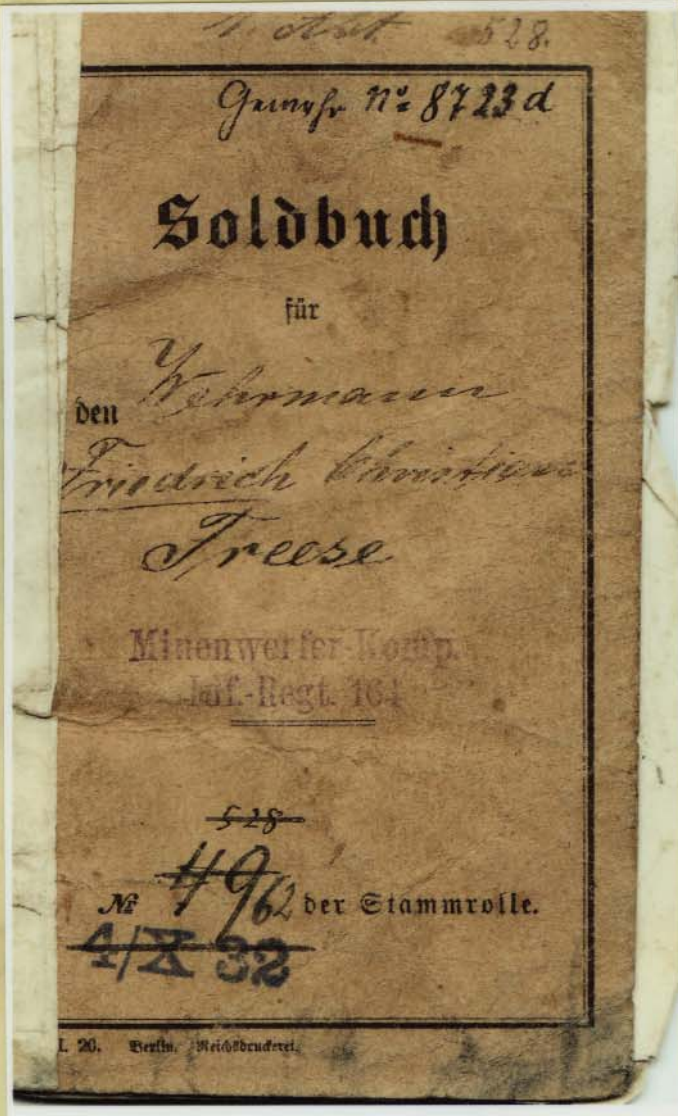 528.
Gewehr No 8723 d
Soldbuch
für
den Wehrmann
Friedrich Christian
Freese
Minenwerfer-Komp.
Inf.-Regt. 164
528
No 49/62 der Stammrolle.
4/X 32
I. 20. Berlin. Reichsdruckerei.